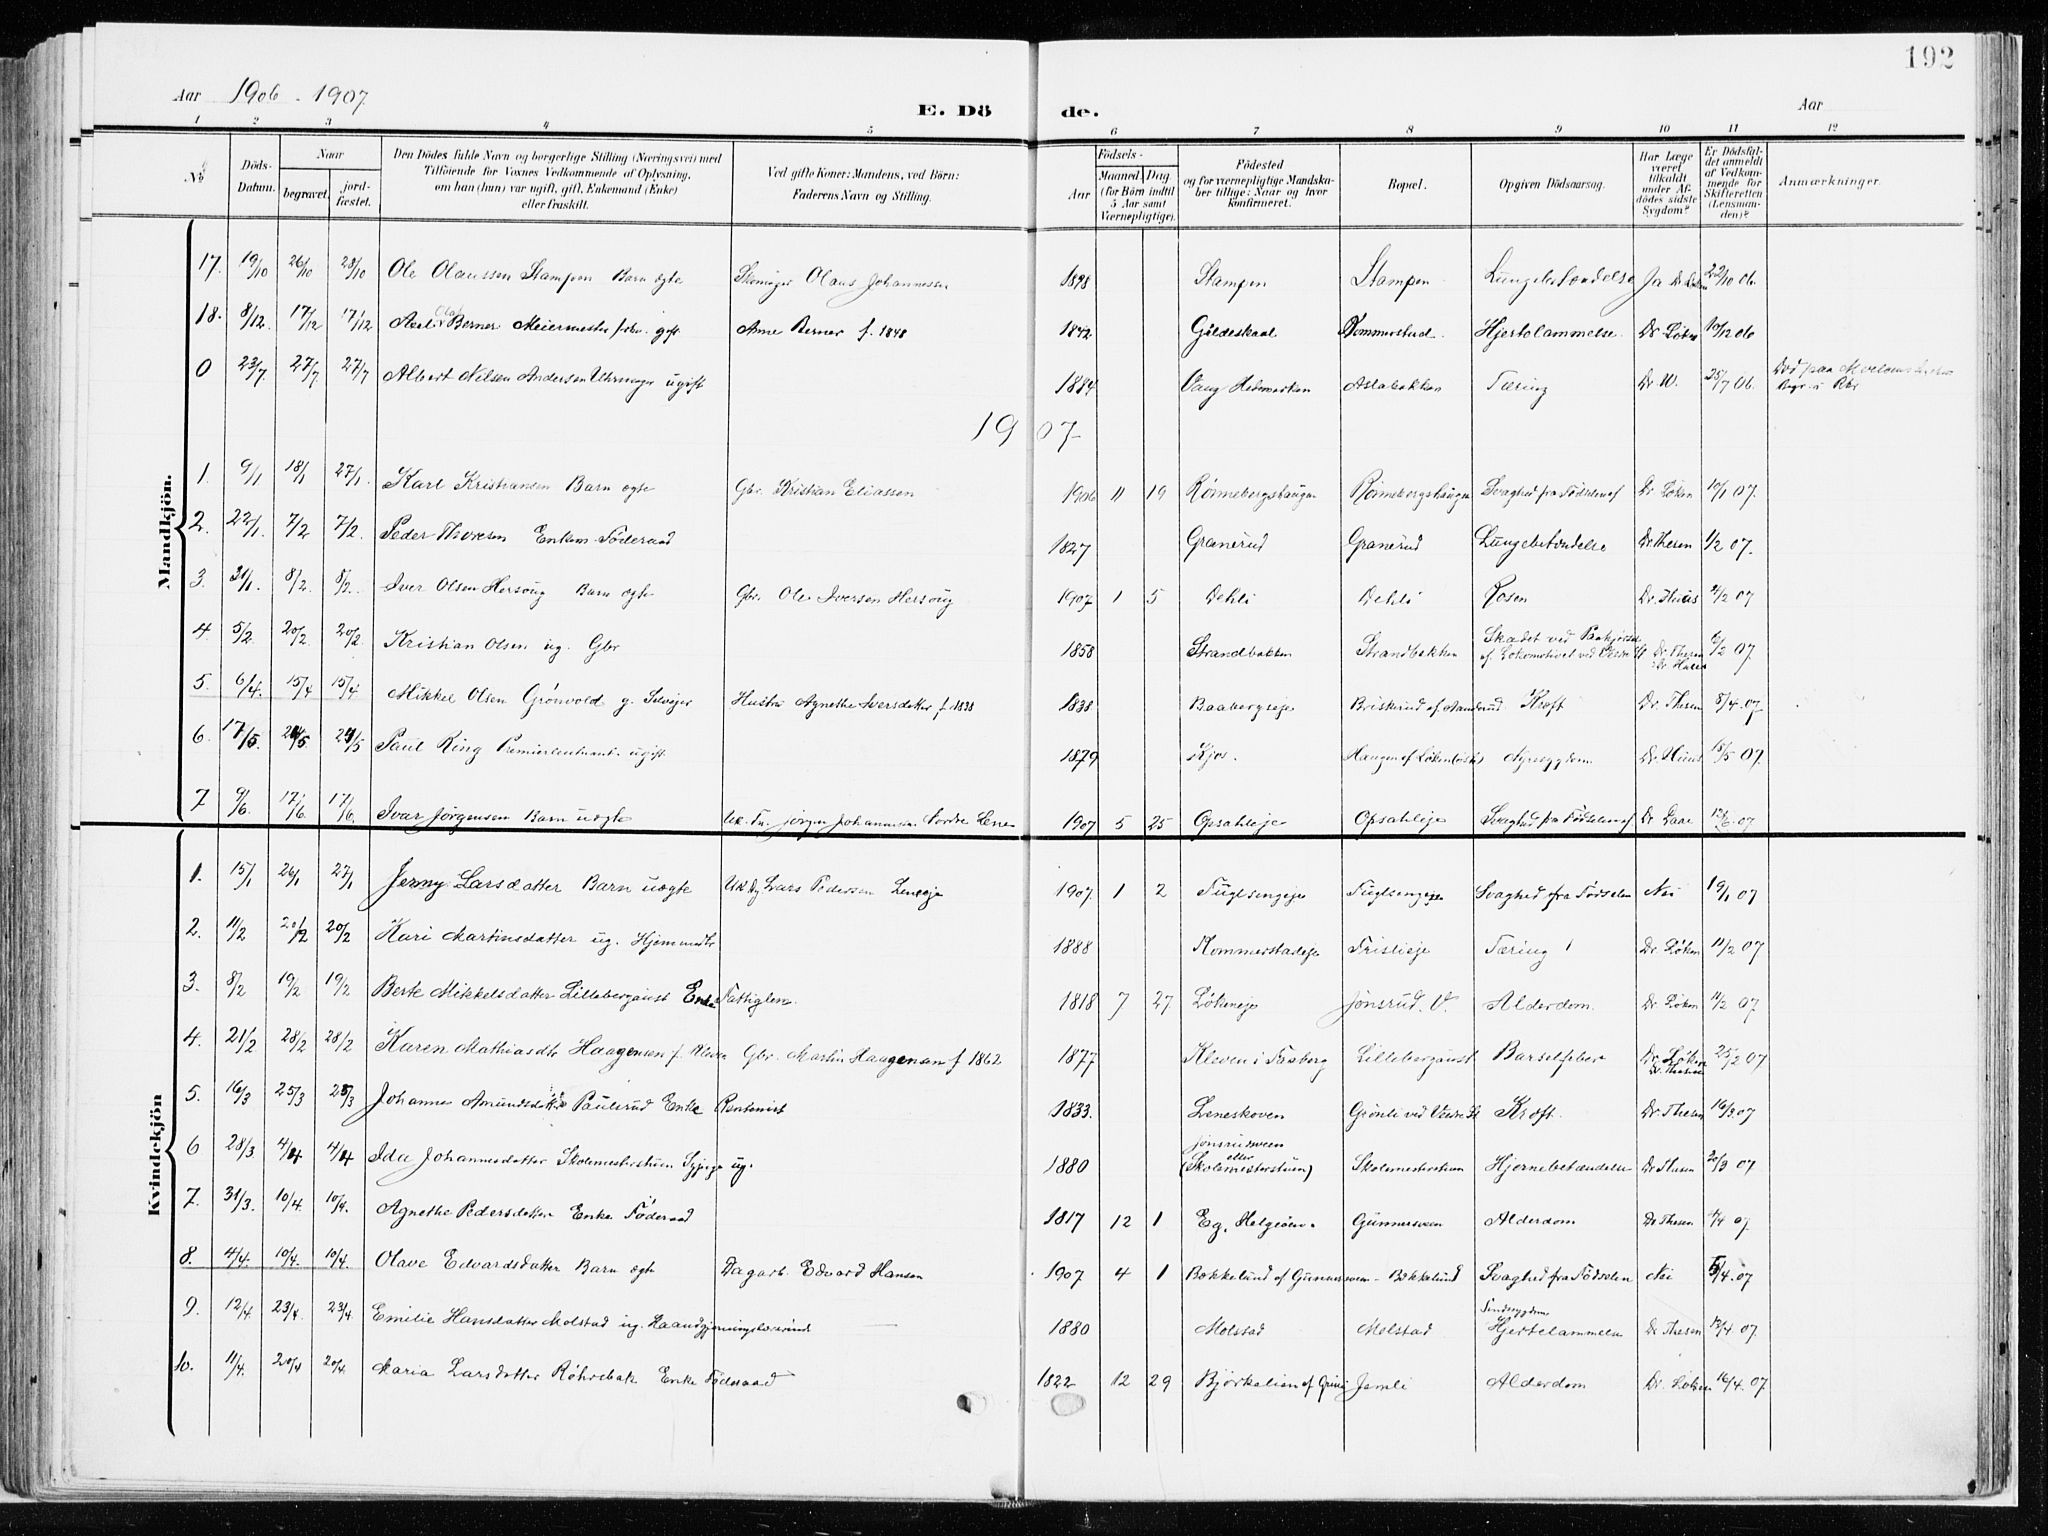 192
Aar 1906-1907
E. Döde.
Aar
1 2 3 4 5 6 7 8 9 10 11 12
No
Döds-Datum.
Naar
begravet.
jord-fæstet.
Den Dödes fulde Navn og borgerlige Stilling (Næringsvei) med Tilföiende for Voxnes Vedkommende af Oplysning, om han (hun) var ugift, gift, Enkemand (Enke) eller fraskilt.
Ved gifte Koner: Mandens, ved Börn: Faderens Navn og Stilling.
Födsels-
Aar
Maaned. Dag.
(for Börn indtil 5 Aar samt Værnepligtige).
Födested og for værnepligtige Mandskaber tillige: Naar og hvor konfirmeret.
Bopæl.
Opgiven Dödsaarsag.
Har Læge været tilkaldt under Afdödes sidste Sygdom?
Er Dödsfaldet anmeldt af Vedkommende for Skifteretten (Lensmanden)?
Anmærkninger.
Mandkjön.
17. 19/10 26/10 28/10 Ole Olaussen Stampen Barn ægte Skomager Olaus Johannessen 1898 Stampen Stampen Lungebetændelse Ja 22/10 06.
18. 8/12. 17/12 17/12 Olaf Berner Meiermester gift Ane Berner f. 1848 1842 Gildeskaal Kommerstad. Hjertelammelse. Dr Löken 10/12 06
0 23/7. 27/7 27/7 Albert Nilsen Andersen Uhrmager ugift 1884 Vang Hedemarken Astabakken Tæring Dr W. 25/7 06. Död paa
1907
1. 9/1 18/1 27/1. Karl Kristiansen Barn ægte Gbr. Kristian Eliassen 1906 11 19 Rönnebergshaugen Rönnebergshaugen Svaghed fra Födselen af Dr Löken 10/1 07.
2. 22/1. 7/2 7/2. Peder Thoresen Enkem. Föderaad 1827 Granerud Granerud Lungebetændelse Dr Thesen 1/2 07.
3. 31/1. 8/2. 8/2. Iver Olsen Hersoug Barn ægte Gbr. Ole Iversen Hersoug 1907 1 5 Dehli Dehli Rosen Dr. 4/2 07
4. 5/2. 20/2. 20/2. Kristian Olsen ug. Gbr 1858 Strandbakken Strandbakken Skadet ved Paakjörsel af Lokomotivet ved Dr. Thesen 6/2 07.
5. 6/4. 15/4 15/4 Mikkel Olsen Grönvold g. Selveier Hustru Agnethe Iversdatter f. 1838 1838 Baabergseje Briskerud af Kræft Dr. Thesen 8/4 07.
6. 17/5. 24/5 24/5 Paul Ring Premierleutnant ugift 1879 Kjos. Haugen af Nyresygdom Dr. Huus 18/5 07.
7 9/6. 17/6 17/6. Ivar Jörgensen Barn uægte Uk. Fm. Jörgen Johannesen Nordre Lene 1907 5 25 Opsahleje Opsahleje Svaghed fra Födselen af Dr Daae 12/6 07
Kvindekjön
1. 15/1 26/1 27/1 Jenny Larsdatter Barn uægte Uk Dg Lars Pedersen Leneeje 1907. 1 2 Fuglsengeje Fuglsengejee Svaghed fra Födselen Nei 19/1 07
2. 11/2 20/2 20/2 Kari Martinsdatter ug. Hjemmedtr 1888 Kommerstadeje Fristieje Tæring Dr. Löken 11/2 07
3. 8/2 19/2 19/2 Berte Mikkelsdatter Lillebergaust Enke Fattiglem. 1818 7 27 Lökeneje Jönsrud. V. Alderdom. Dr. Löken 11/2 07
4. 21/2 28/2 28/2 Karen Mathiasdtr Haagensen f. Kleven Gbr. Martin Haagensen f 1862 1877 Kleven i Faaberg Lillebergaust Barselfeber Dr. Löken Dr. Thesen 25/2 07
5. 16/3 25/3 25/3 Johanne Amundsdatter Paulsrud Enke Rentenist 1833. Leneskoven Grönli ved Veldre St Kræft. Dr. Thesen 16/3 07
6 28/3. 4/4 4/4 Ida Johannesdatter Skolemesterstuen Syjpige ug. 1880 Jönsrudsveen eller (Skolemesterstuen) Skolemesterstuen Hjernebetændelse Dr Thesen 30/3 07
7. 31/3. 10/4. 10/4. Agnethe Pedersdatter Enke Föderaad 1817 12 1 Eg, Helgeöen. Gunnersveen Alderdom Dr Thesen 4/4 07.
8. 4/4. 10/4. 10/4. Olave Edvardsdatter Barn ægte Dagarb. Edvard Hansen 1907 4 1 Bakkelund af Gunnersveen - Bakkelund Svaghed fra Födselen Nei 5/4. 07
9. 12/4. 23/4 23/4. Emilie Hansdatter Molstad ug. Haandgjerningslærerinde 1880 Molstad Molstad Sindssygdom Hjertelammelse Dr Thesen 13/4 07.
10. 11/4. 20/4 20/4. Maria Larsdatter Röhrbak Enke Föderaad 1822 12 29 Björkelien af Jemli Alderdom Dr. Löken 16/4. 07.